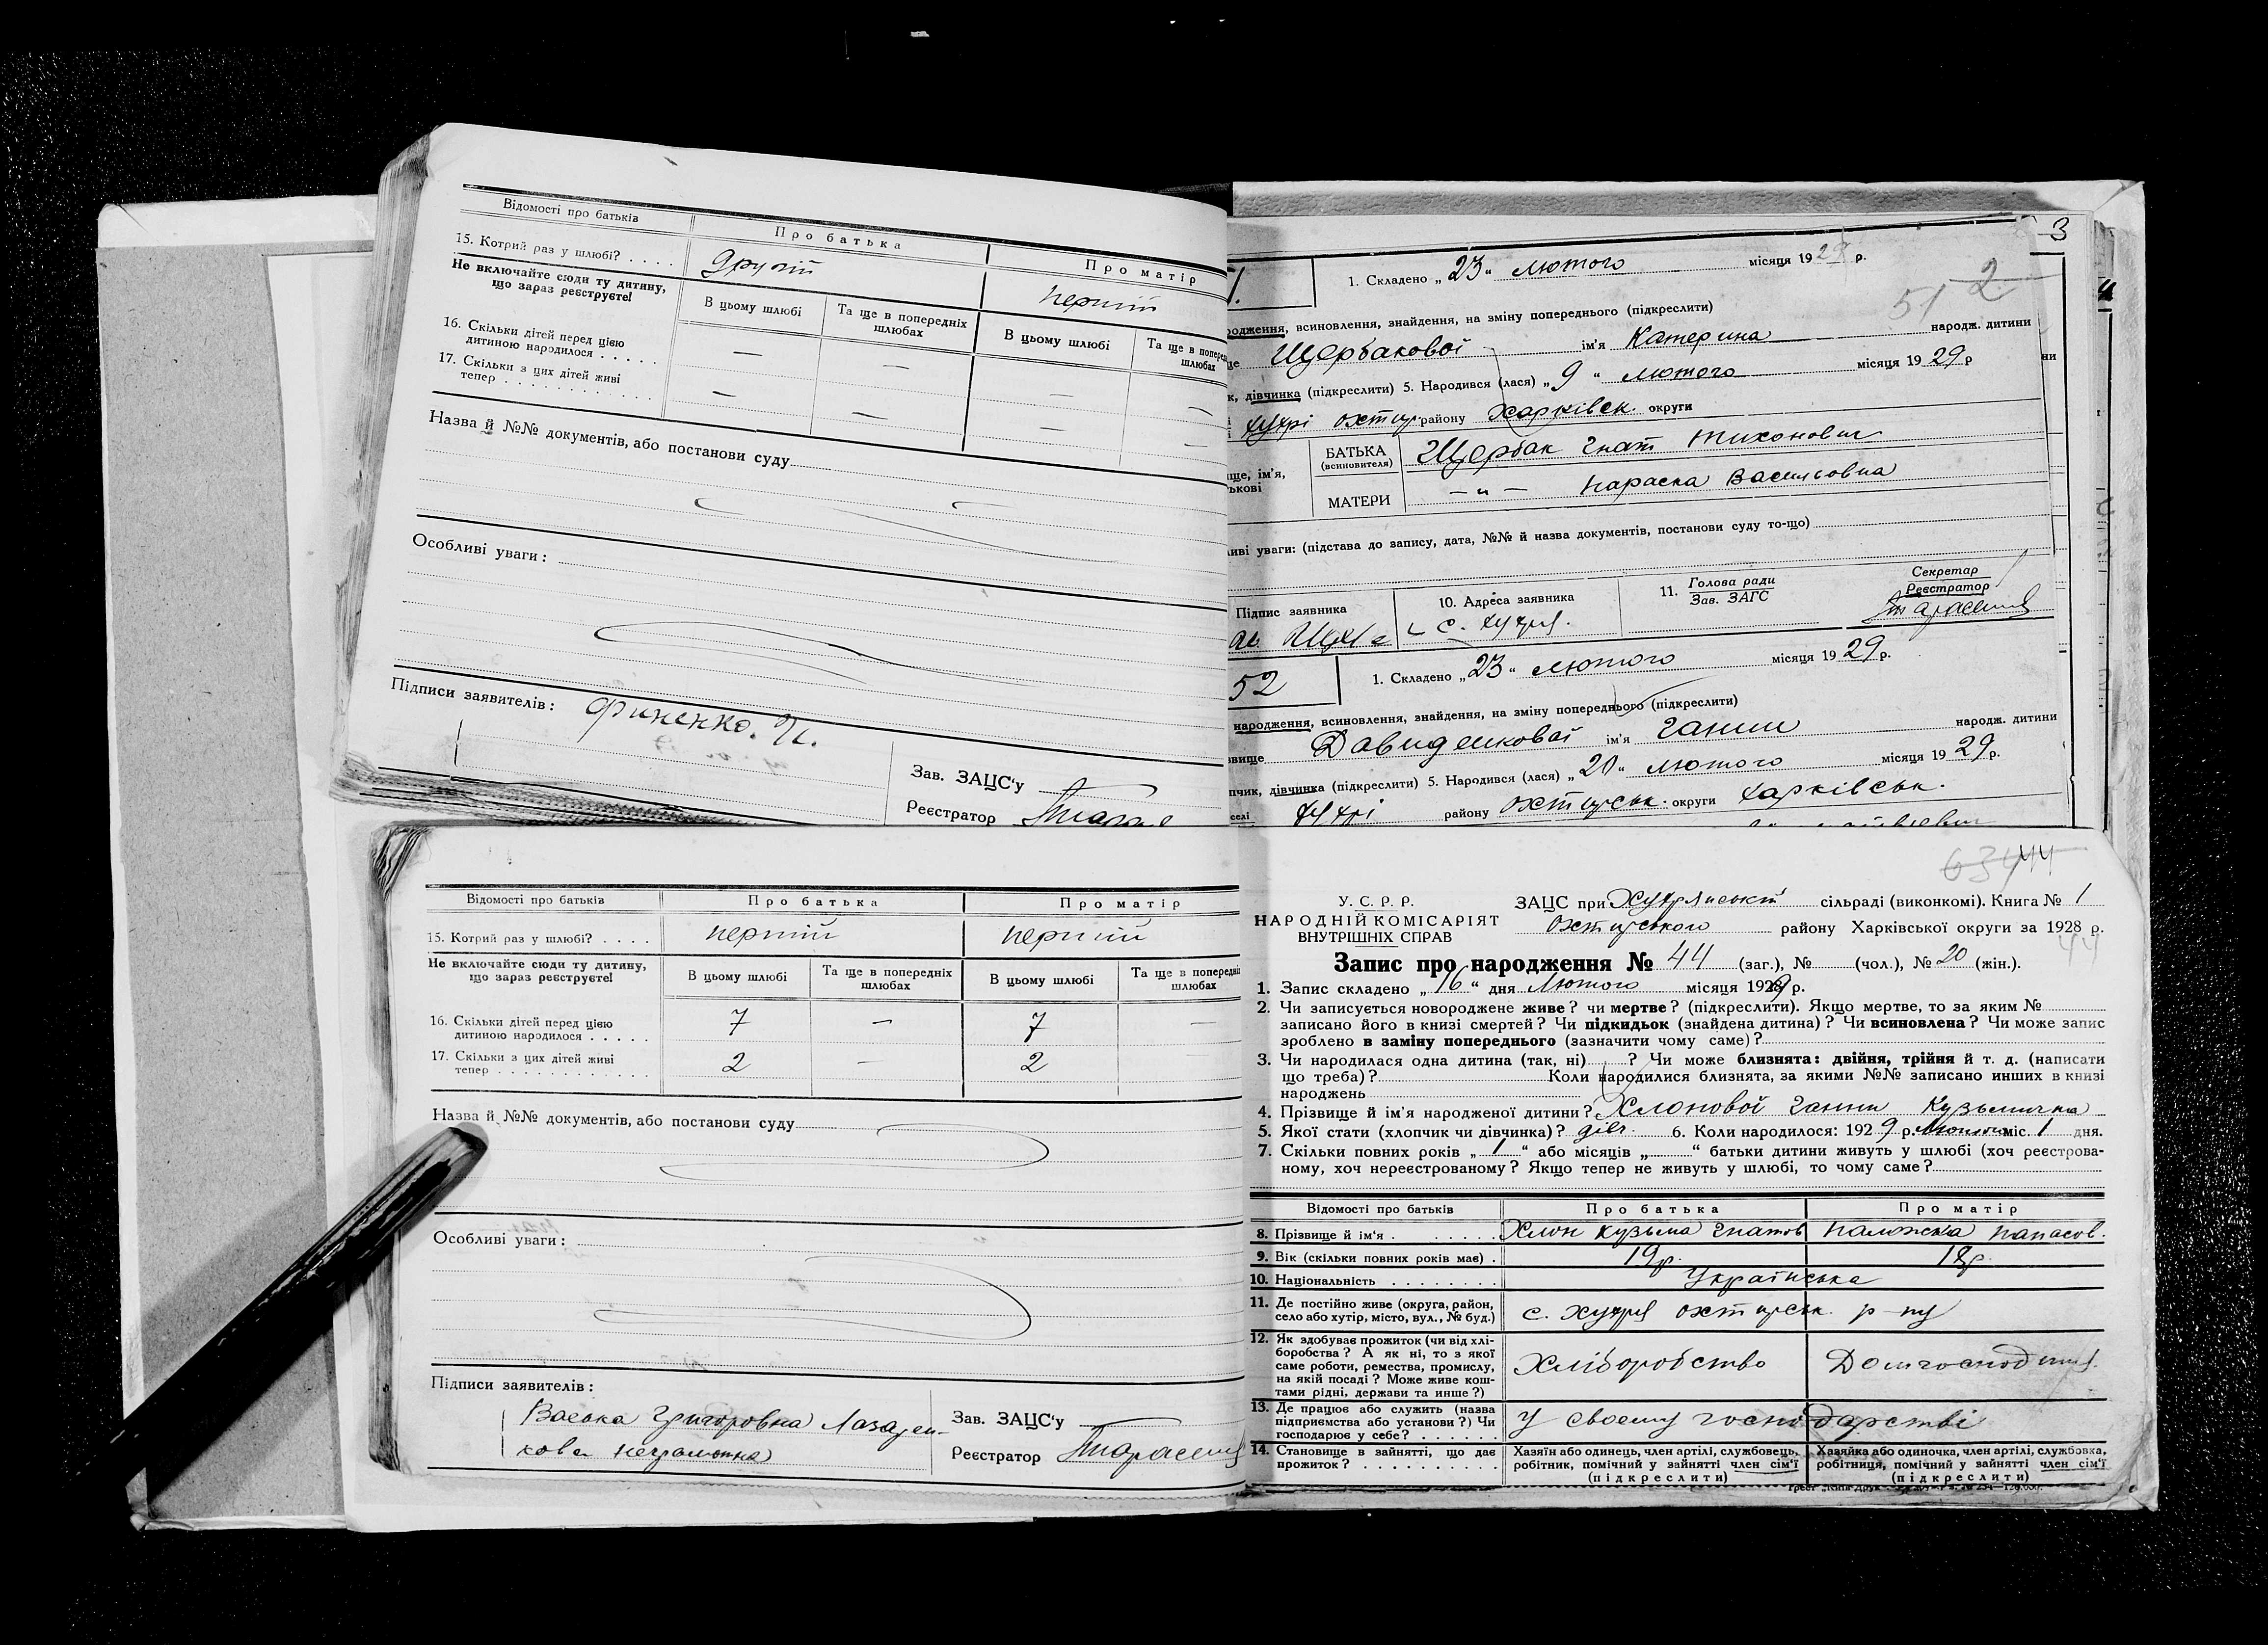 Відомості про батьків Про батька Про матір
15. Котрий раз у шлюбі? . . . . другий перший
Не включайте сюди ту дитину, що зараз реєструєте!
В цьому шлюбі Та ще в попередніх шлюбах В цьому шлюбі Та ще в попере
шлюбах
16. Скільки дітей перед цією
дитиною народилося . . . . . — —
17. Скільки з цих дітей живі
тепер . . . . . . . . . . . . — — — —
Назва й №№ документів, або постанови суду
Особливі уваги:
Підписи заявителів: Финенко. И.
Зав. ЗАЦС'у
Реєстратор
3
1. Складено „23“ лютого місяця 1929 р.
51 2
родження, всиновлення, знайдення, на зміну попереднього (підкреслити)
Щербакової ім'я Катерина народж. дитини
к, дівчинка (підкреслити) 5. Народився (лася) „9“ лютого місяця 1929 р
хухрі охтир. району Харківськ. округи
ще, ім'я,
ькові
БАТЬКА
(всиновителя) Щербак Гнат Тихонович
МАТЕРИ —„— Параска Васильовна
иві уваги: (підстава до запису, дата, №№ й назва документів, постанови суду то-що)
Підпис заявника
10. Адреса заявника
с. хухря.
11. Голова ради
Зав. ЗАГС
Секретар
Реєстратор
52
1. Складено „23“ лютого місяця 1929 р.
народження, всиновлення, знайдення, на зміну попереднього (підкреслити)
вище Давиденкової ім'я Ганни народж. дитини
пчик, дівчинка (підкреслити) 5. Народився (лася) „20“ лютого місяця 1929 р.
селі хухрі району охтирськ. округи харківськ.
Відомості про батьків Про батька Про матір
15. Котрий раз у шлюбі? . . . . перший перший
Не включайте сюди ту дитину, що зараз реєструєте!
В цьому шлюбі Та ще в попередніх шлюбах В цьому шлюбі Та ще в попередні
шлюбах
16. Скільки дітей перед цією
дитиною народилося . . . . . 7 — 7 —
17. Скільки з цих дітей живі
тепер . . . . . . . . . . . . 2 — 2
Назва й №№ документів, або постанови суду
Особливі уваги:
Підписи заявителів:
Васька Григоровна Лазарен-
кова неграмотна
Зав. ЗАЦС'у
Реєстратор Тарасенко
63 44
У. С. Р. Р.
НАРОДНІЙ КОМІСАРІЯТ
ВНУТРІШНІХ СПРАВ
ЗАЦС при Хухрянській сільраді (виконкомі). Книга № 1
Охтирського району Харківської округи за 1928 р.
44
Запис про народження № 44 (заг.), № (чол.), № 20 (жін.).
1. Запис складено „16“ дня Лютого місяця 1929 р.
2. Чи записується новороджене живе? чи мертве? (підкреслити). Якщо мертве, то за яким №
записано його в книзі смертей? Чи підкидьок (знайдена дитина)? Чи всиновлена? Чи може запис
зроблено в заміну попереднього (зазначити чому саме)?
3. Чи народилася одна дитина (так, ні) ? Чи може близнята: двійня, трійня й т. д. (написати
що треба)? Коли народилися близнята, за якими №№ записано инших в книзі
народжень
4. Прізвище й ім'я народженої дитини? Хлонової Ганни Кузьмична
5. Якої стати (хлопчик чи дівчинка)? дівч. 6. Коли народилося: 1929 р. Лютого міс. 1 дня.
7. Скільки повних років „1“ або місяців „ “ батьки дитини живуть у шлюбі (хоч реєстрова-
ному, хоч нереєстрованому? Якщо тепер не живуть у шлюбі, то чому саме?
Відомості про батьків Про батька Про матір
8. Прізвище й ім'я . . . . . . . Хлон Кузьма Гнатов Палажка Панасов.
9. Вік (скільки повних років має) . 19р. 18р.
10. Національність . . . . . . . . Українська
11. Де постійно живе (округа, район,
село або хутір, місто, вул., № буд.) с. Хухря охтирськ. р-ну
12. Як здобуває прожиток (чи від хлі-
боробства? А як ні, то з якої
саме роботи, ремества, промислу,
на якій посаді? Може живе кош-
тами рідні, держави та инше?)
Хліборобство
13. Де працює або служить (назва
підприємства або установи?) Чи
господарює у себе? . . . . . . У своєму господарстві
14. Становище в зайнятті, що дає
прожиток? . . . . . . . . . .
Хазяїн або одинець, член артілі, службовець,
робітник, помічний у зайнятті член сім'ї
(підкреслити)
Хазяйка або одиночка, член артілі, службовка,
робітниця, помічний у зайнятті член сім'ї
(підкреслити)